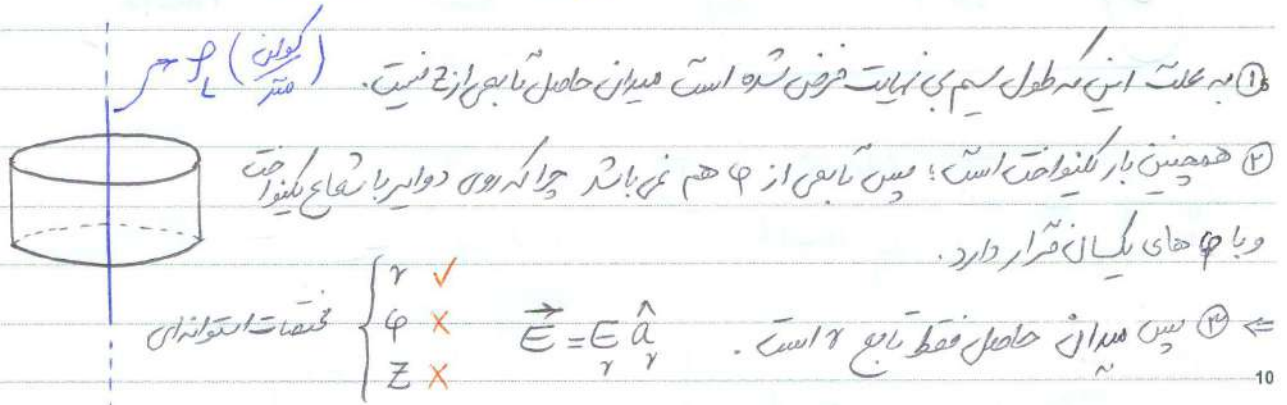 ρL (کولن/متر)
① به علت این که طول سیم بی نهایت فرض شده است میدان حاصل تابعی از z نیست.
② همچنین بار یکنواخت است؛ پس تابعی از φ هم نمی باشد چرا که روی دوایر با شعاع یکنواخت
و با φ های یکسان قرار دارد.
⇐ ③ پس میدان حاصل فقط تابع r است. E = Er âr
مختصات استوانه‌ای { r ✓
φ ✗
Z ✗
10